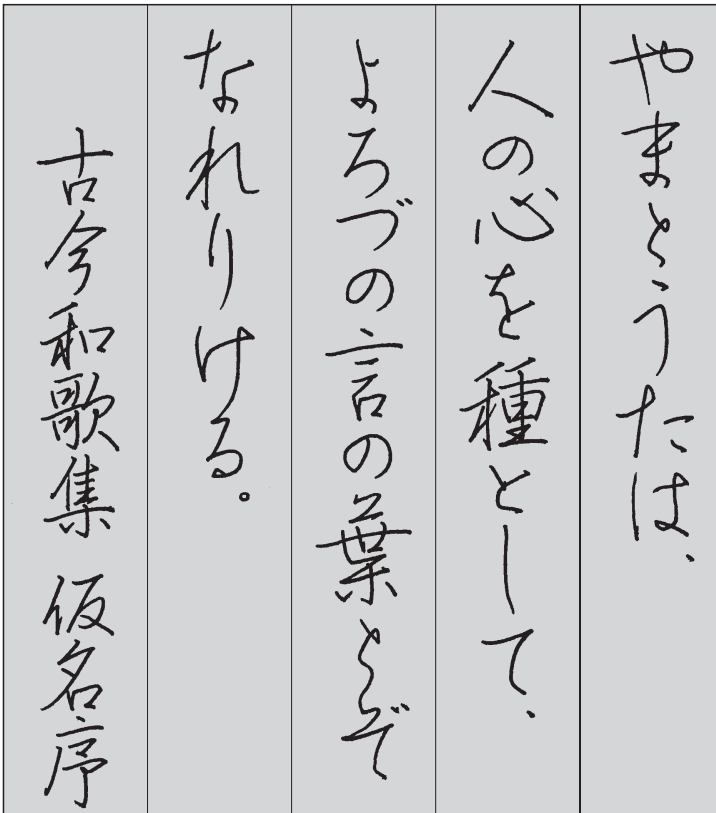 やまとうたは、
人の心を種として、
よろづの言の葉とぞ
なれりける。
古今和歌集 仮名序